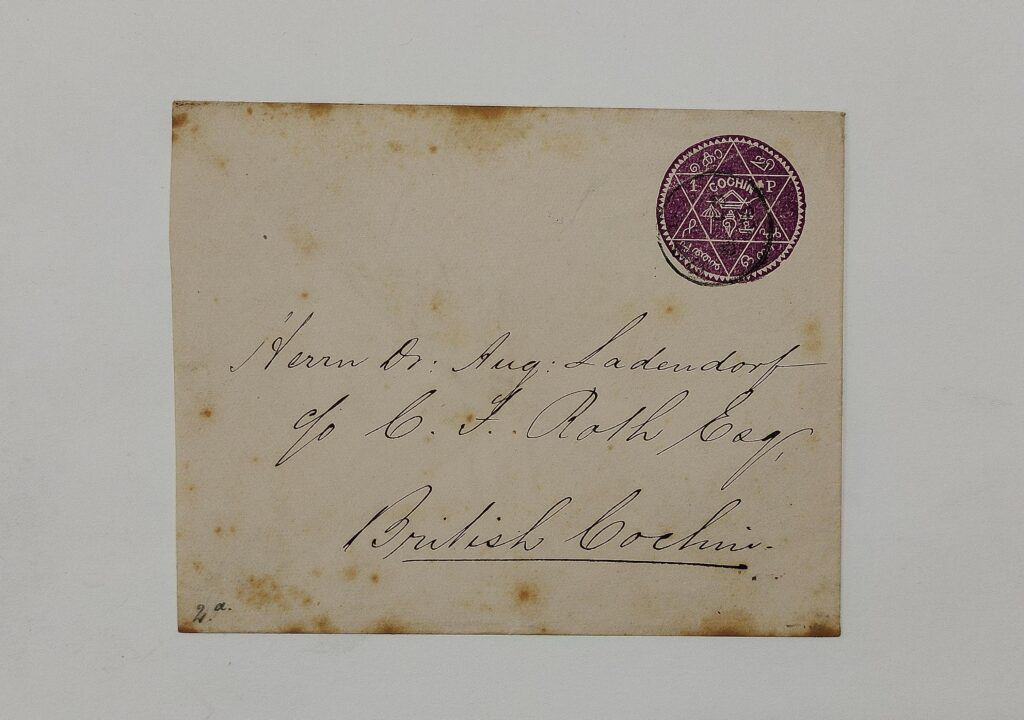 കൊ ച്ചി
1 COCHIN P
Herrn Dr. Aug: Ladendorf
c/o C. F. Roth Esq,
British Cochin.
2 a.